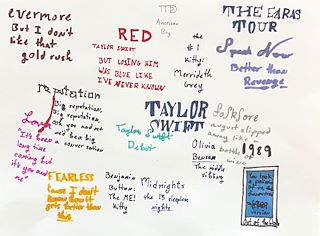 evermore
But I don't
like that
gold rush
TTPD
American
Boy
RED
TAYLOR SWIFT
BUT LOSING HIM
WAS BLUE LIKE
I'VE NEVER KNOWN
the
#1
Kitty:
Merredith
Grey
THE EARAS
TOUR
Speak Now
Better than
Revenge
reputation
Big reputation,
Big reputation
you and me
big
conversation
Lover
"It's been a
long time
coming but
it's you and
me"
TAYLOR
SWIFT
Taylor Swift
Debut
folklore
august slipped
away like a
bottle of
wine
Olivia
Benson
The middle
sibling
1989
FEARLESS
Cause I don't
know how it
gets better than
this
Benjamin
Button:
The ME!
Kitty
Midnights
the 13 sleepless
nights